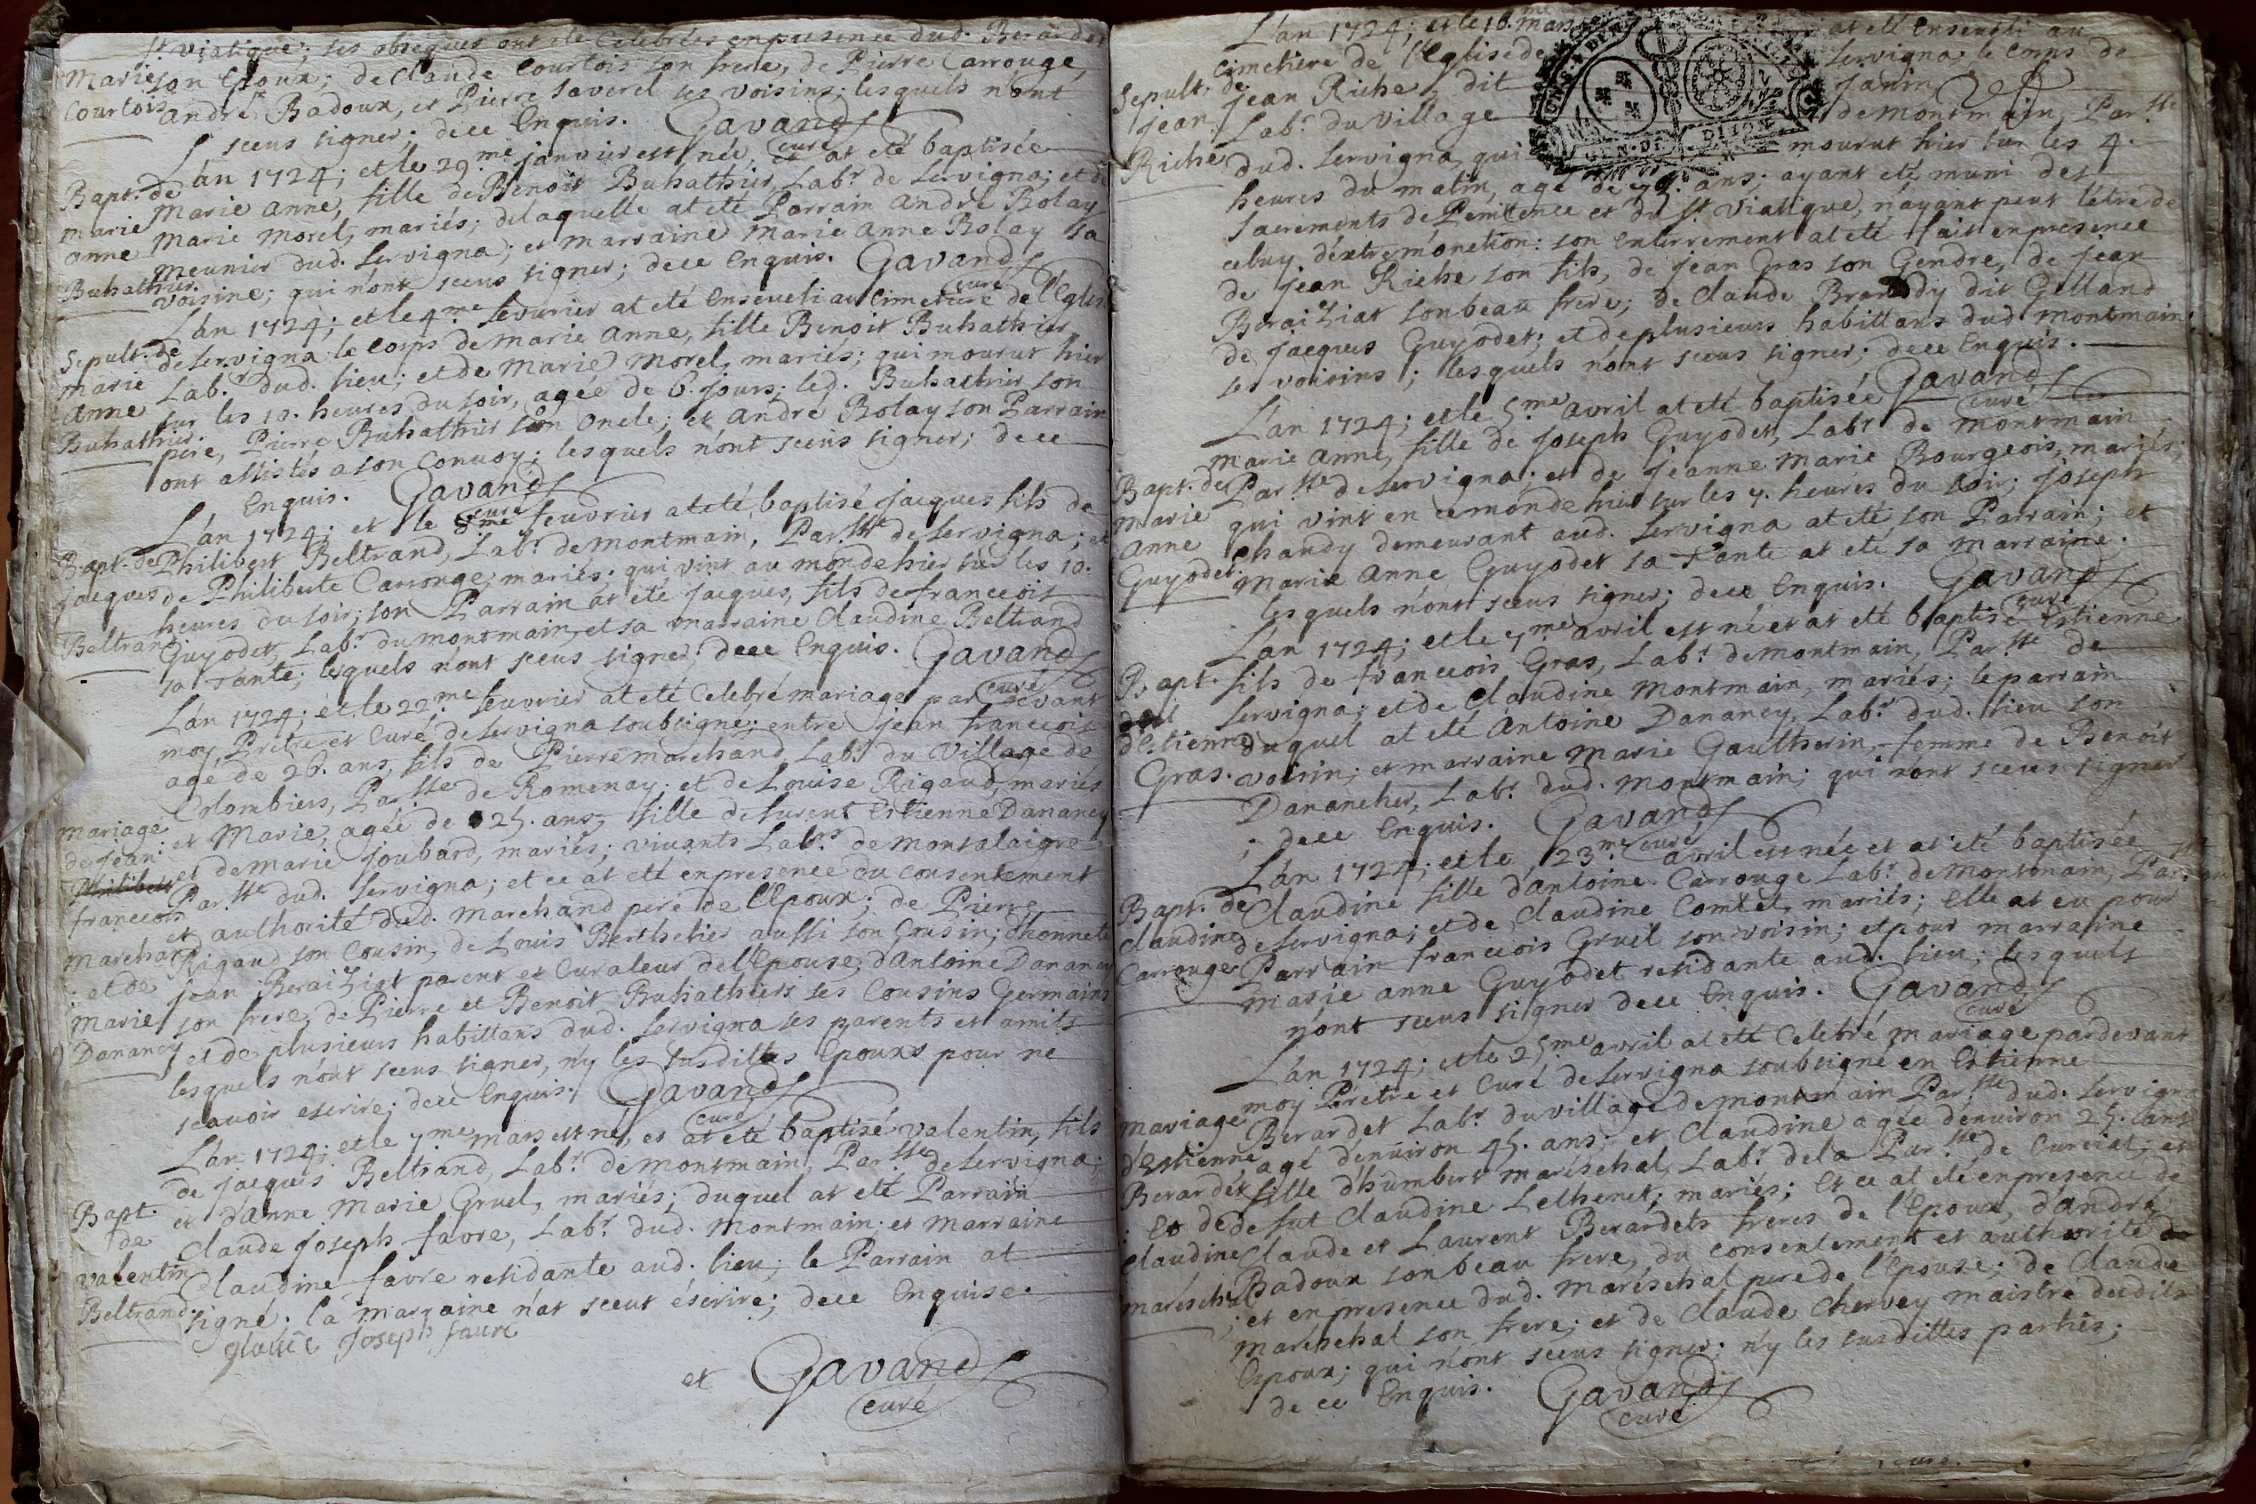 St. Viatique; ses obseques ont eté Celebrées en presence dud. Berardet
Marie son Epoux; de Claude Courtois son frere, de Pierre Carrouge,
Courtois André Badoux, et Pierre Saverel ses voisins; lesquels n'ont
sceus signer; dece Enquis. Gavand curé
L'an 1724; et le 29.me janvier est née, et at eté baptisée
Bapt. de Marie Anne, fille de Benoit Buhathier, Labr. de Servigna; et de
Marie Marie Morel, mariés; de laquelle at eté Parrain André Bolay
Anne Meunier dud. Servigna; et Marraine Marie Anne Bolay sa
Buhathier. voisine; qui n'ont sceus signer; dece Enquis. Gavand curé
L'an 1724; et le 4.me fevurier at eté Enseveli au Cimetiere de l'Eglise
Sepult. de de Servigna le Corps de Marie Anne, fille Benoit Buhathier
Marie Labr. dud. lieu; et de Marie Morel, mariés; qui mourut hier
Anne sur les 10. heures du soir, agée de 6. jours; led. Buhathier son
Buhathier. pere, Pierre Buhathier son Oncle; et André Bolay son Parrain
ont assistés a son Convoy; lesquels n'ont sceus signer; dece
Enquis. Gavand curé
L'an 1724; et le 8.me feuvrier at eté baptisé jacques fils de
Bapt. de Philibert Beltrand, Labr. de Montmain, Par.sse de Servigna; et
jacques de Philiberte Carrouge, mariés; qui vint au monde hier sur les 10.
heures du soir; son Parrain at eté jacques, fils de francois
Beltrand Guyodet, Labr. du Montmain, et sa marraine Claudine Beltrand
sa Tante; lesquels n'ont sceus signer; dece Enquis. Gavand curé
L'an 1724; et le 22.me feuvrier at eté Celebré mariage par devant
moy, Prêtre et Curé de Servigna soubsigné; entre jean francois
agé de 26. ans, fils de Pierre Marchand, Labr. du Village de
Colombiers, Par.sse de Romenay; et de Louise Rigaud, mariés
Mariage et Marie, agée de 25. ans, fille de furent Estienne Danancy
de jean et de Marie Joubard, mariés; vivants Labrs. de Montalaigre
Philibert Par.sse dud. Servigna; et ce at eté en presence du consentement
francois et authorité dud. Marchand pere de l'Epoux; de Pierre
Marchand Rigaud son Cousin, de Louis Berthelier aussi son Cousin; d'honnete
et de jean Beraiziat parent et Curateur de l'Epouse; d'Antoine Danancy
Marie son frere, de Pierre et Benoit Buhathiers ses Cousins Germains
Danancy et de plusieurs habittans dud. Servigna ses parents et amits
lesquels n'ont sceus signer, n'y les susdittes Epoux pour ne
scauoir escrire; dece Enquis. Gavand curé
L'an 1724; et le 7.me mars est né, et at eté baptisé valentin, fils
de jacques Beltrand, Labr. de Montmain, Par.sse de Servigna;
Bapt. et d'Anne Marie Gruel, mariés; duquel at eté Parrain
de Claude joseph favre, Labr. dud. Montmain; et Marraine
valentin Claudine favre residante aud. lieu; le Parrain at
Beltrand signé; la Marraine n'at sceut éscrire; dece Enquise.
glaude Joseph faure
et Gavand
curé
L'an 1724; et le 16. mars at eté Enseveli au
Cimetiere de l'Eglise de Servigna le Corps de
Sepult. de jean Riche, dit Janin
jean Labr. du village de Montmain, Par.sse
Riche dud. Servigna, qui mourut hier sur les 4.
heures du matin, agé de ans; ayant eté muni des
Sacrements de Penitence et du St. Viatique, n'ayant peut l'être de
celuy d'extremonction: son Enterrement at eté fait en presence
de jean Riche son fils, de jean Gras son Gendre, de jean
Beraiziat son beau frere; de Claude Brondy dit Gelland
de jacques Guyodet; et de plusieurs habittans dud. Montmain
ses voisins; lesquels n'ont sceus signer; dece Enquis.
Gavand curé
L'an 1724; et le 5.me avril at eté baptisée
Marie Anne, fille de joseph Guyodet, Labr. de Montmain
Bapt. de Par.sse de Servigna; et de jeanne Marie Bourgeois, mariés;
Marie qui vint en ce monde hier sur les 7. heures du soir; joseph
Anne Chandy demeurant aud. Servigna at eté son Parrain; et
Guyodet. Marie Anne Guyodet sa Tante at eté sa Marraine.
lesquels n'ont sceus signer; dece Enquis. Gavand curé
L'an 1724; et le 7.me avril est né et at eté baptisé Estienne
Bapt. fils de francois Gras, Labr. de Montmain, Par.sse de
Servigna; et de Claudine Montmain, mariés; le parrain
d'Estienne duquel at eté Antoine Danancy, Labr. dud. lieu son
Gras. voisin; et marraine Marie Gaultherin, femme de Benoit
Danancher, Labr. dud. Montmain; qui n'ont sceus signer
; dece Enquis. Gavand curé
L'an 1724; et le 23.me avril est née et at eté baptisée
Bapt. de Claudine fille d'Antoine Carrouge Labr. de Montmain, Par.sse
Claudine de Servigna; et de Claudine Comtet, mariés; Elle at eu pour
Carrouge Parrain francois Gruel son voisin; et pour marraine
Marie Anne Guyodet residante aud. lieu; lesquels
n'ont sceus signer dece Enquis. Gavand curé
L'an 1724; et le 25.me avril at eté Celebré mariage pardevant
moy Prêtre et Curé de Servigna soubsigné en Estienne
Mariage Berardet Labr. du village de Montmain Par.sse dud. Servigna
d'Estienne agé denuiron 45. ans; et Claudine agée denuiron 25. ans
Berardet fille d'humbert Mareschal, Labr. de la Par.sse de Curciat; et
Et de de fut Claudine Lethenet; mariés; Et ce at eté en presence de
Claudine Claude et Laurent Berardets freres de l'Epoux, d'André
Mareschal Badoux son beau frere, du consentement et authorité
; et en presence dud. Mareschal pere de l'Epouse; de Claude
Mareschal son frere; et de Claude Chervey maistre desdits
Epoux; qui n'ont sceus signer; n'y les susdittes parties;
de ce Enquis. Gavand
curé
curé.